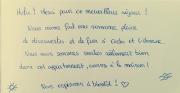 Hola ! Merci pour ce merveilleux séjour !
Nous avons fait une semaine pleine
de découvertes et de fun à
Nous nous sommes sentis tellement bien
dans cet appartement, comme à la maison !
Nous espérons à bientôt ! ♡